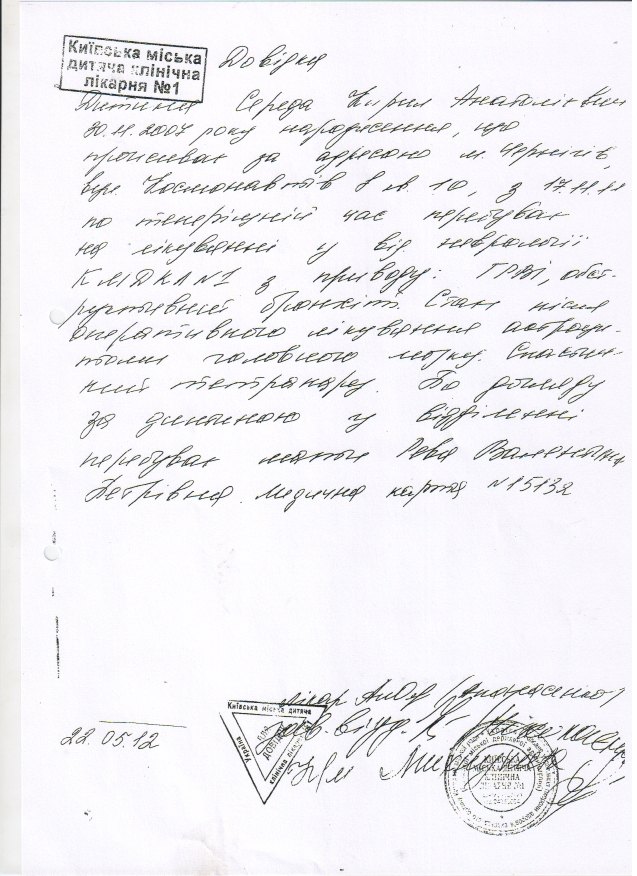 Київська міська
дитяча клінічна
лікарня №1
Довідка
Дитина Середа Кирил Анатолієвич
30.11.2007 року народження, що
проживає за адресою м. Чернігів,
вул. Космонавтів 8 кв. 10, з 17.11.11
по теперішній час перебуває
на лікуванні у від неврології
КМДКЛ №1 з приводу: ГРВІ, обст-
руктивний бронхіт. Стан після
оперативного лікування астроци-
томи головного мозку. Спастич-
ний тетрапарез. По догляду
за дитиною у відділенні
перебуває мати Рева Валентина
Петрівна. Медична карта №15132
лікар
зав. від.
22.05.12
Київська міська дитяча
клінічна лікарня
Україна
для
КИЇВСЬКА
МІСЬКА ДИТЯЧА
КЛІНІЧНА
ЛІКАРНЯ №1